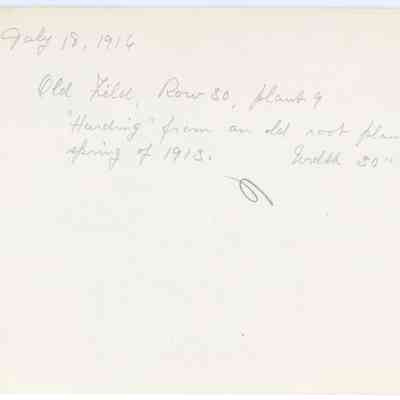 July 18, 1916
Old Field, Row 30, plant 9
"Harding" from an old root plan
spring of 1913. Width 30"
9